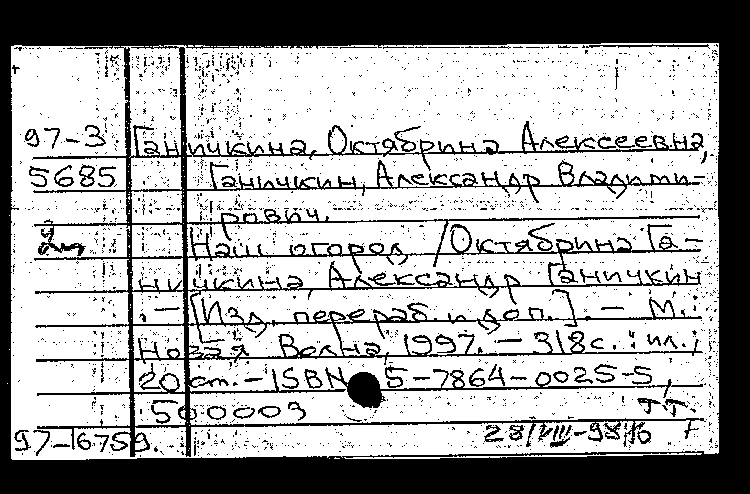 97-3 Ганичкина, Октябрина Алексеевна,
5685 Ганичкин, Александр Владими-
рович.
Наш огород /Октябрина Га-
ничкина, Александр Ганичкин
. - [Изд. перераб. и доп.]. - М.:
Новая Волна, 1997. - 318 с. : ил.;
20 cm. - ISBN 5-7864-0025-5,
500003 тт.
97-16759. 28/VIII-98